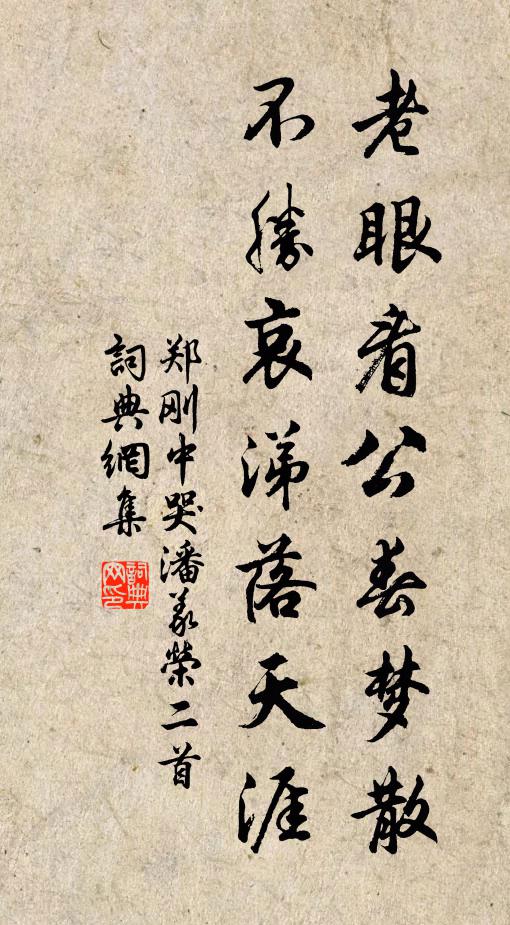 老眼看公春梦散
不勝哀涕落天涯
郑刚中哭潘義榮二首
詞典網集
詞典网印